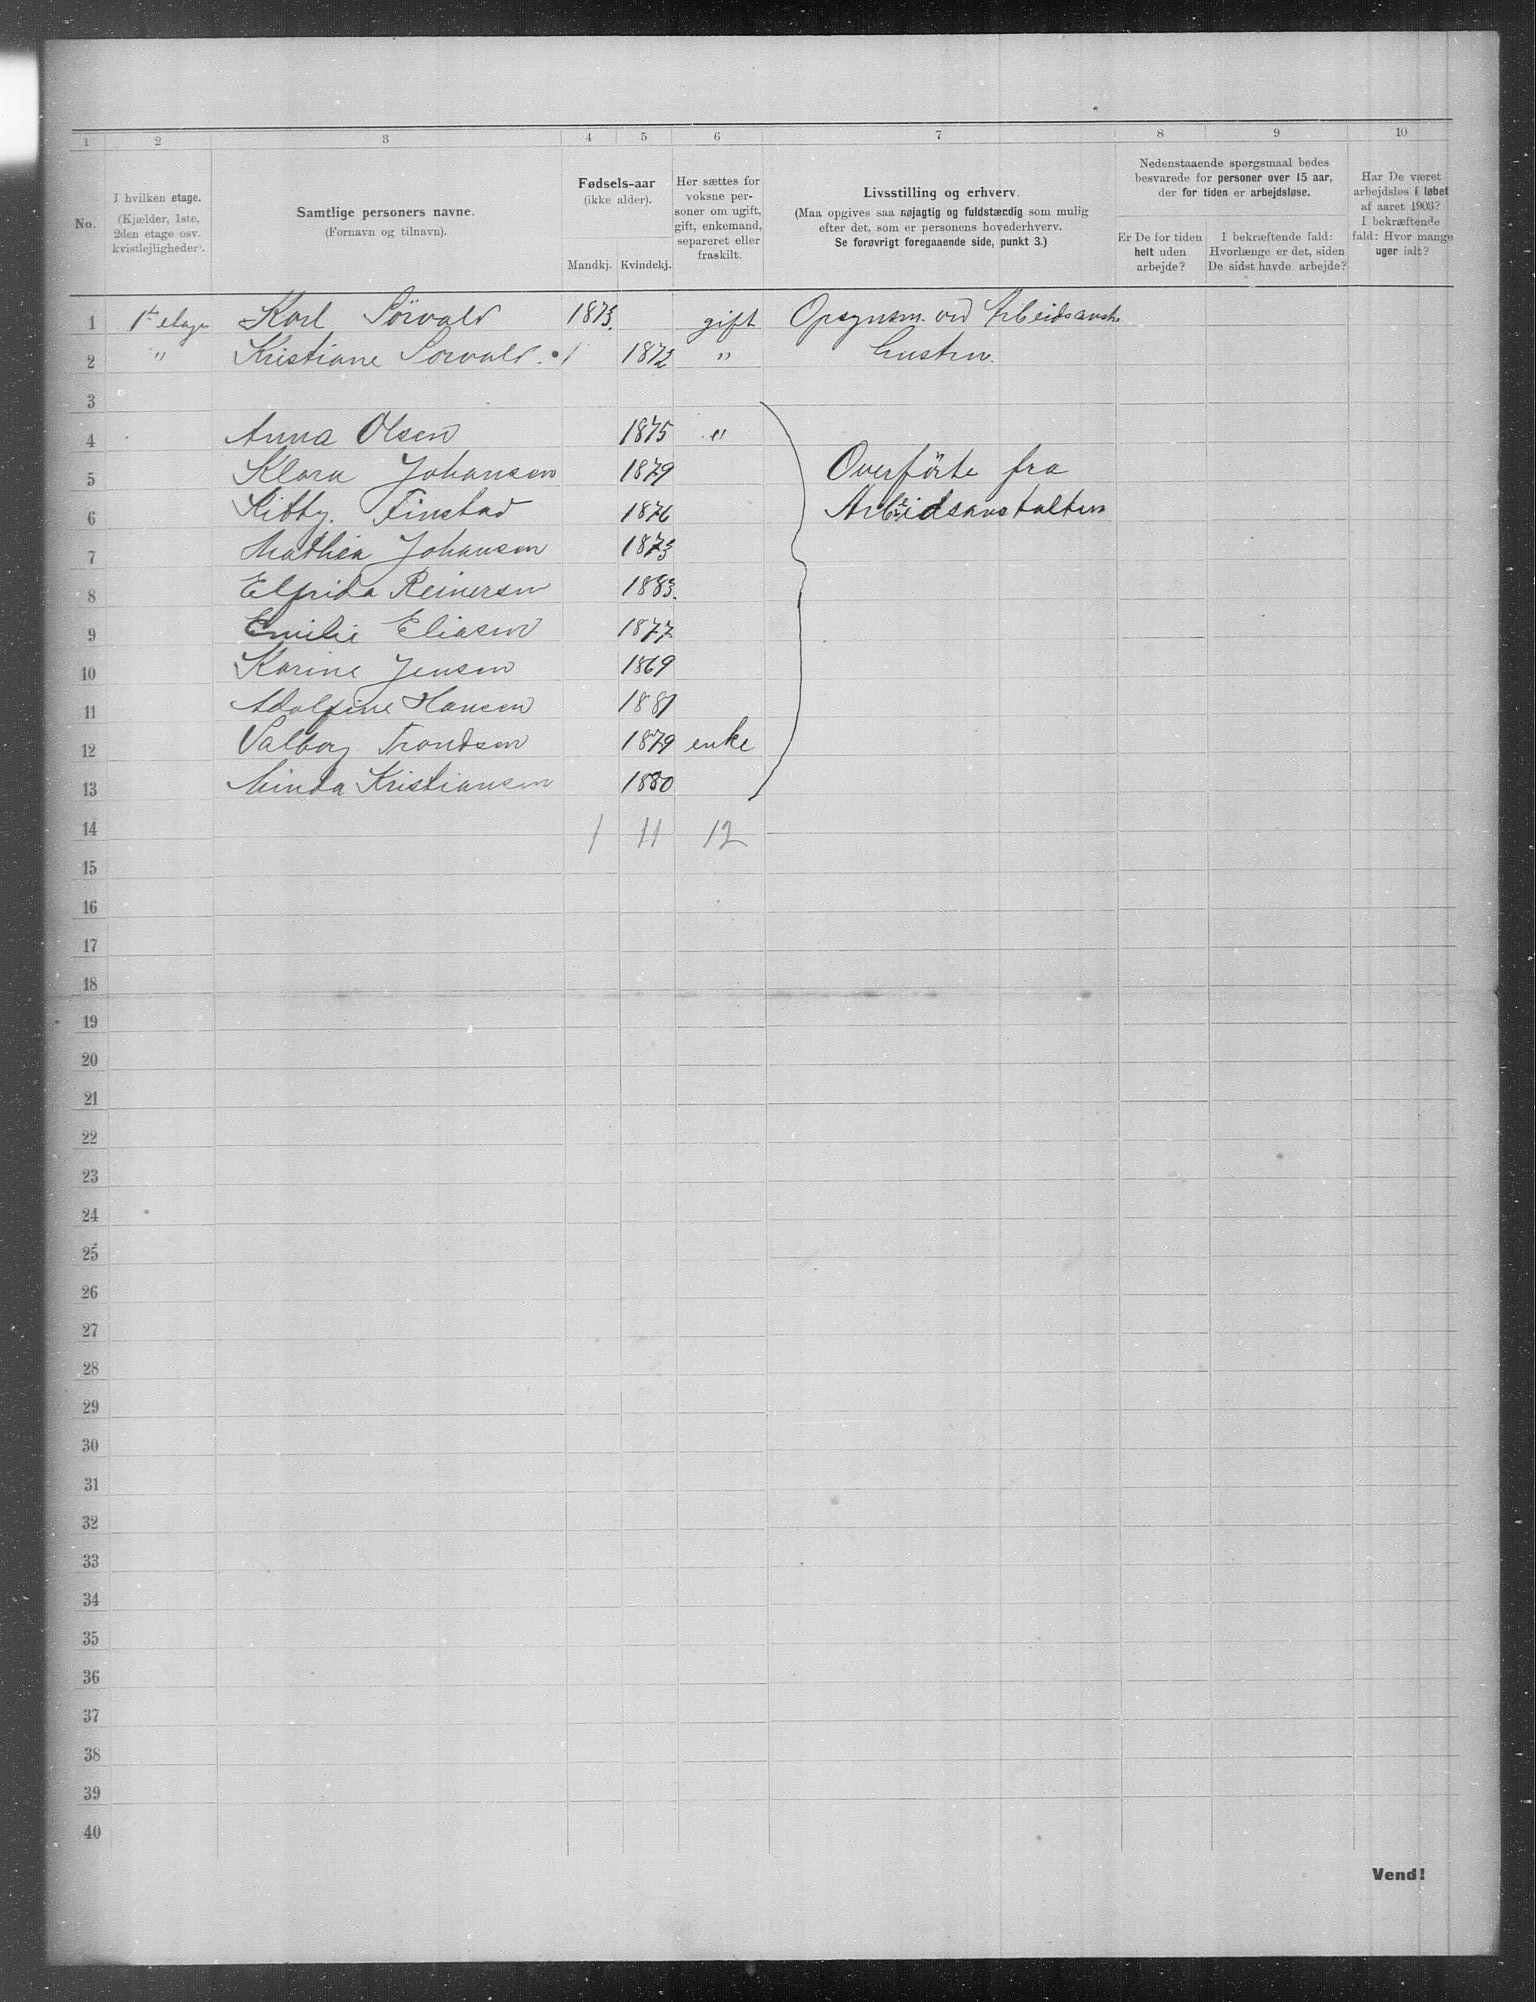 1 2 3 4 5 6 7 8 9 10
No.
I hvilken etage.
(Kjælder, 1ste,
2den etage osv.
kvistlejligheder).
Samtlige personers navne.
(Fornavn og tilnavn).
Fødsels-aar
(ikke alder).
Mandkj. Kvindekj.
Her sættes for
voksne per-
soner om ugift,
gift, enkemand,
separeret eller
fraskilt.
Livsstilling og erhverv.
(Maa opgives saa nøjagtig og fuldstændig som mulig
efter det, som er personens hovederhverv.
Se forøvrigt foregaaende side, punkt 3.)
Nedenstaaende spørgsmaal bedes
besvarede for personer over 15 aar,
der for tiden er arbejdsløse.
Er De for tiden
helt uden
arbejde?
I bekræftende fald:
Hvorlænge er det, siden
De sidst havde arbejde?
Har De været
arbejdsløs i løbet
af aaret 1903?
I bekræftende
fald: Hvor mange
uger ialt?
1 1ste etage Karl Sörvald 1873. gift Opsynsm. ved Arbeidsanst.
2 " Kristiane Sorvald. 1872 " hustru.
3
4 Anna Olsen 1875 "
5 Klara Johansen 1879 Overförte fra
6 Kitty Finstad 1876 Arbeidsanstalten
7 Mathea Johansen 1873
8 Elfrida Reinersen 1883.
9 Emilie Eliasen 1877
10 Karine Jensen 1869
11 Adolfine Hansen 1881
12 Valborg Trondsen 1879 enke
13 Minda Kristiansen 1880
14 1 11 12
15
16
17
18
19
20
21
22
23
24
25
26
27
28
29
30
31
32
33
34
35
36
37
38
39
40
Vend!